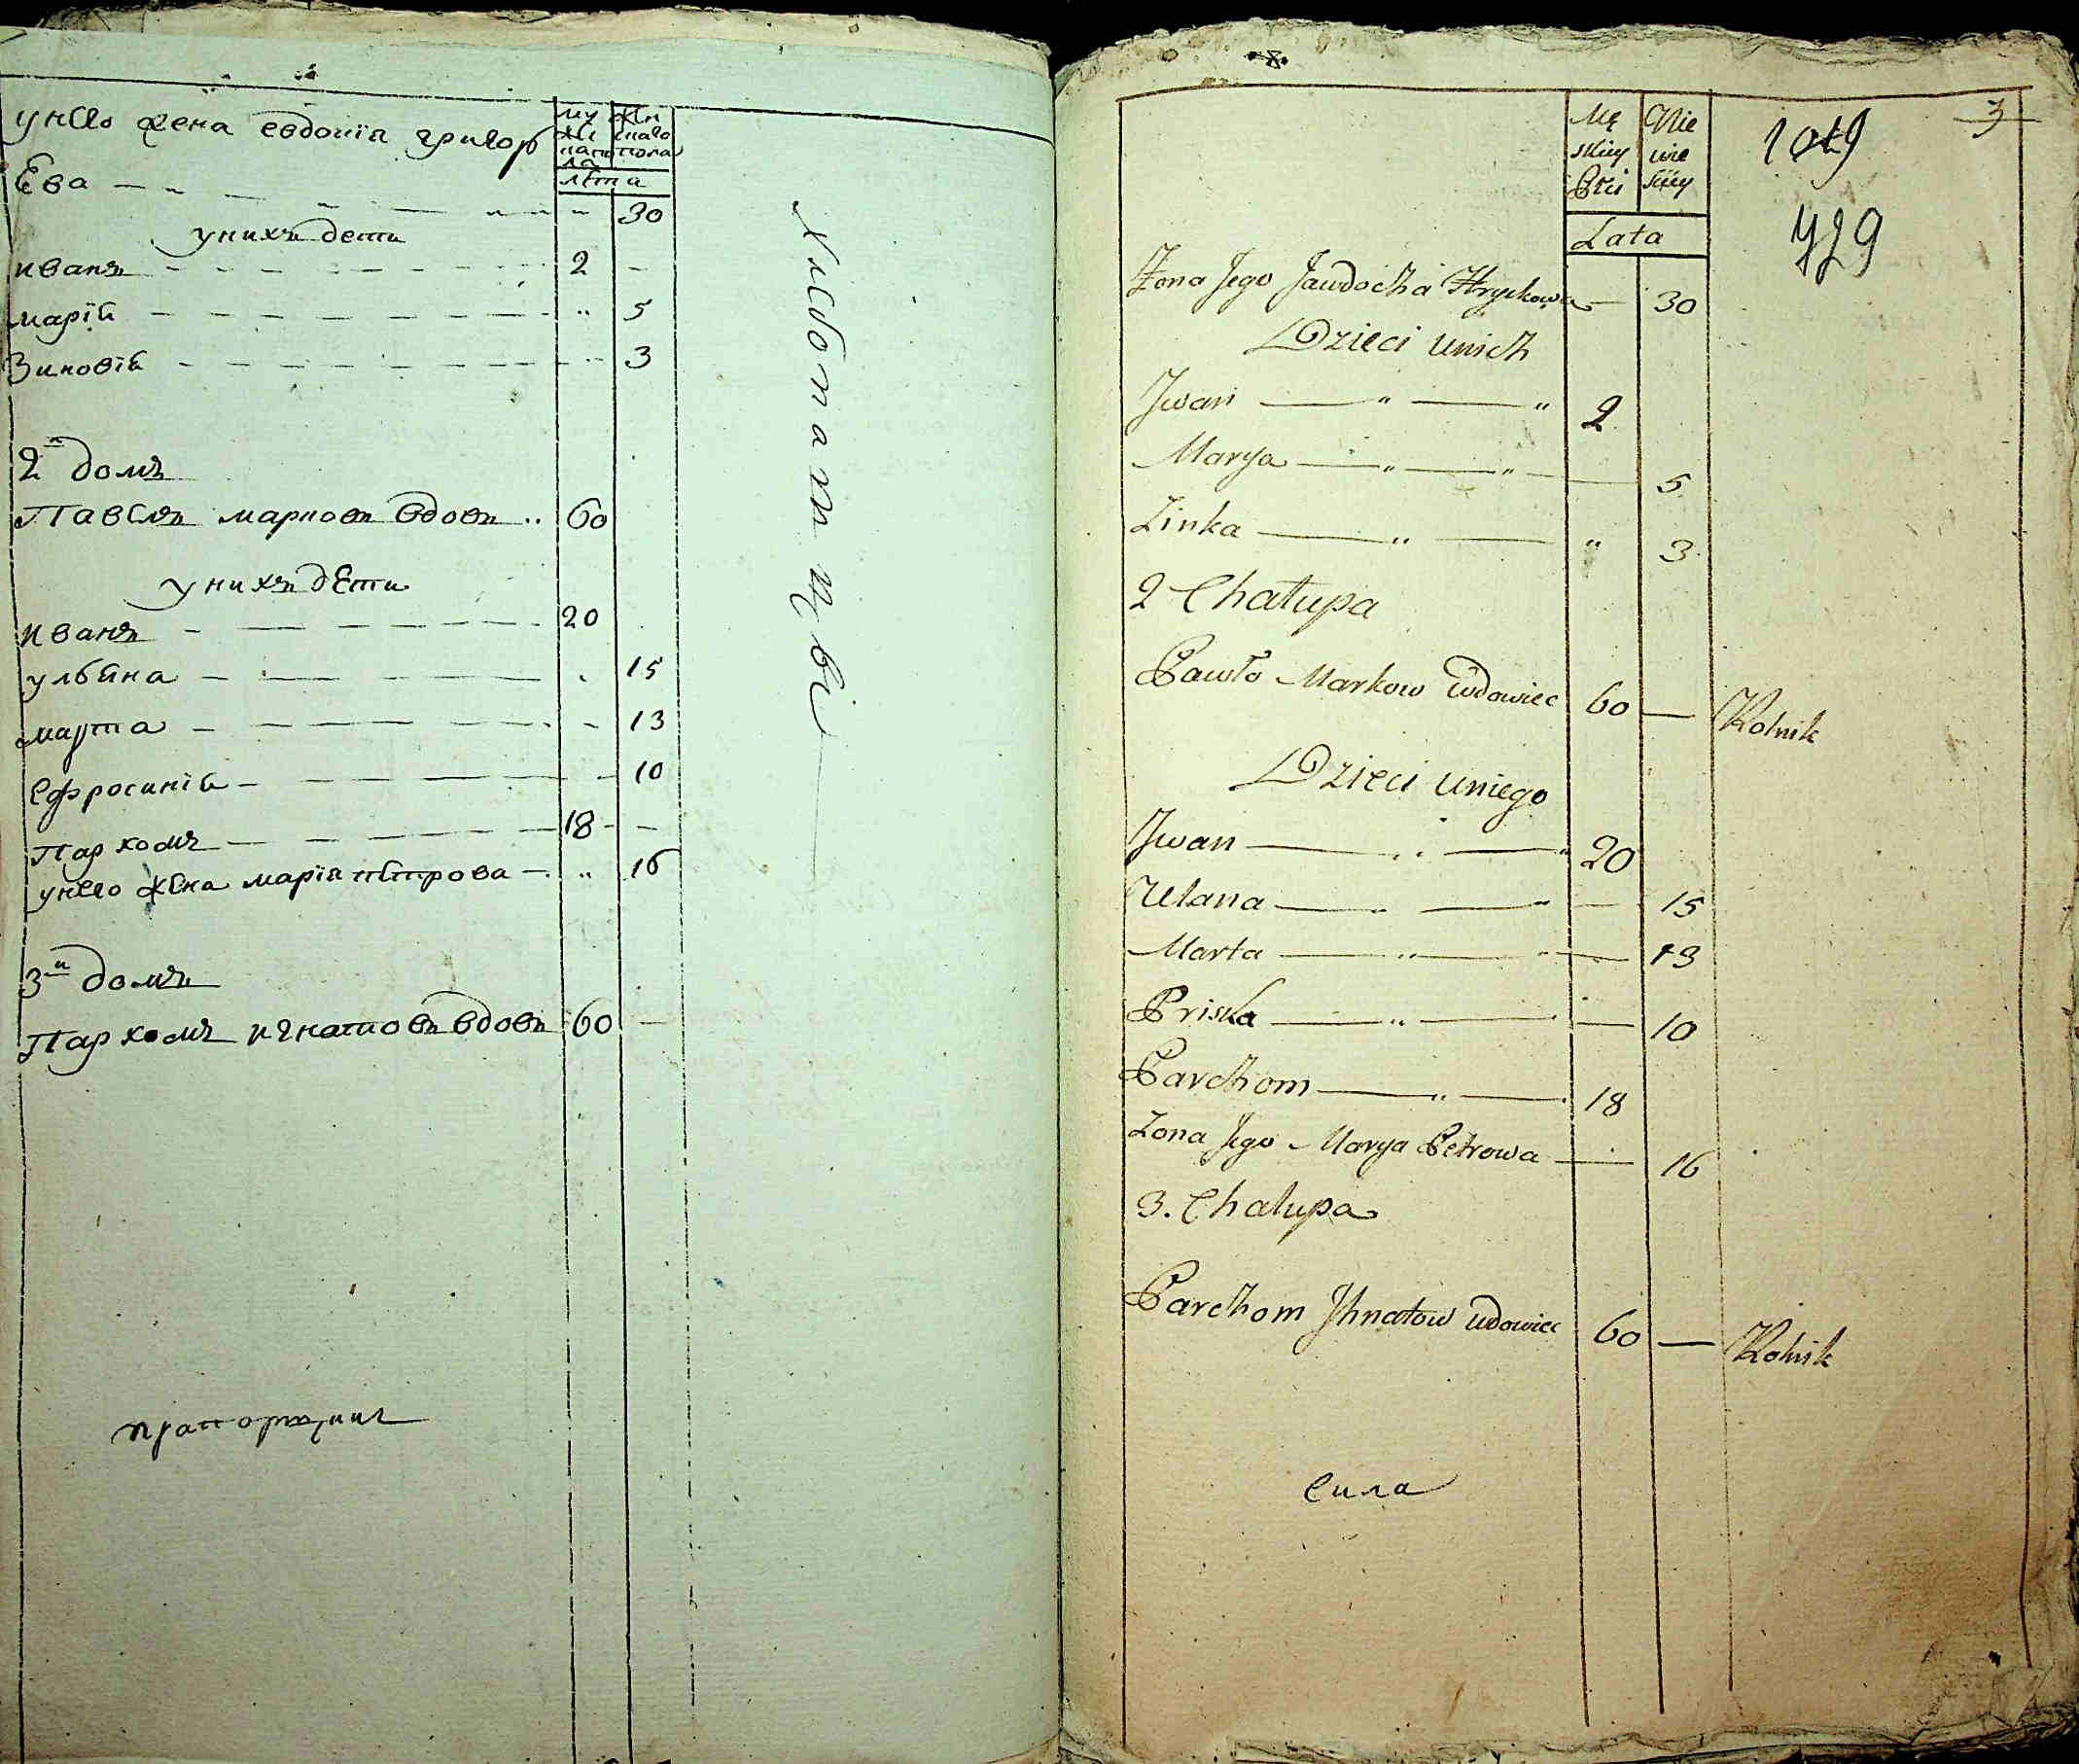 унего жена евдокія григорь
ева 30
му жескаго пола
женскаго пола
лета
у нихъ дети
иванъ 2 -
марія 5
Зиновія 3
2й домъ
Павелъ марковъ вдовъ 60
у нихъ дети
иванъ 20
ульяна 15
марта 13
ефросинія 10
Пархомъ 18
унего жена марія петрова 16
3й домъ
Пархомъ игнатовъ вдовъ 60 -
хлебопашцы
прапорщикъ
3
1019
729
Mę skiey Płci
Nie wie sciey
Lata
Żona Jego Jawdocha Hryckowa 30
Dzieci unich
Jwan 2
Marya 5
Zinka 3
2 Chałupa
Pawło Markow wdowiec 60 — Rolnik
Dzieci uniego
Jwan 20
Ulana 15
Marta 13
Priska 10
Parchom 18
Zona Jego Marya Petrowa 16
3. Chalupa
Parchom Jhnatow wdowiec 60 — Rolnik
Сила